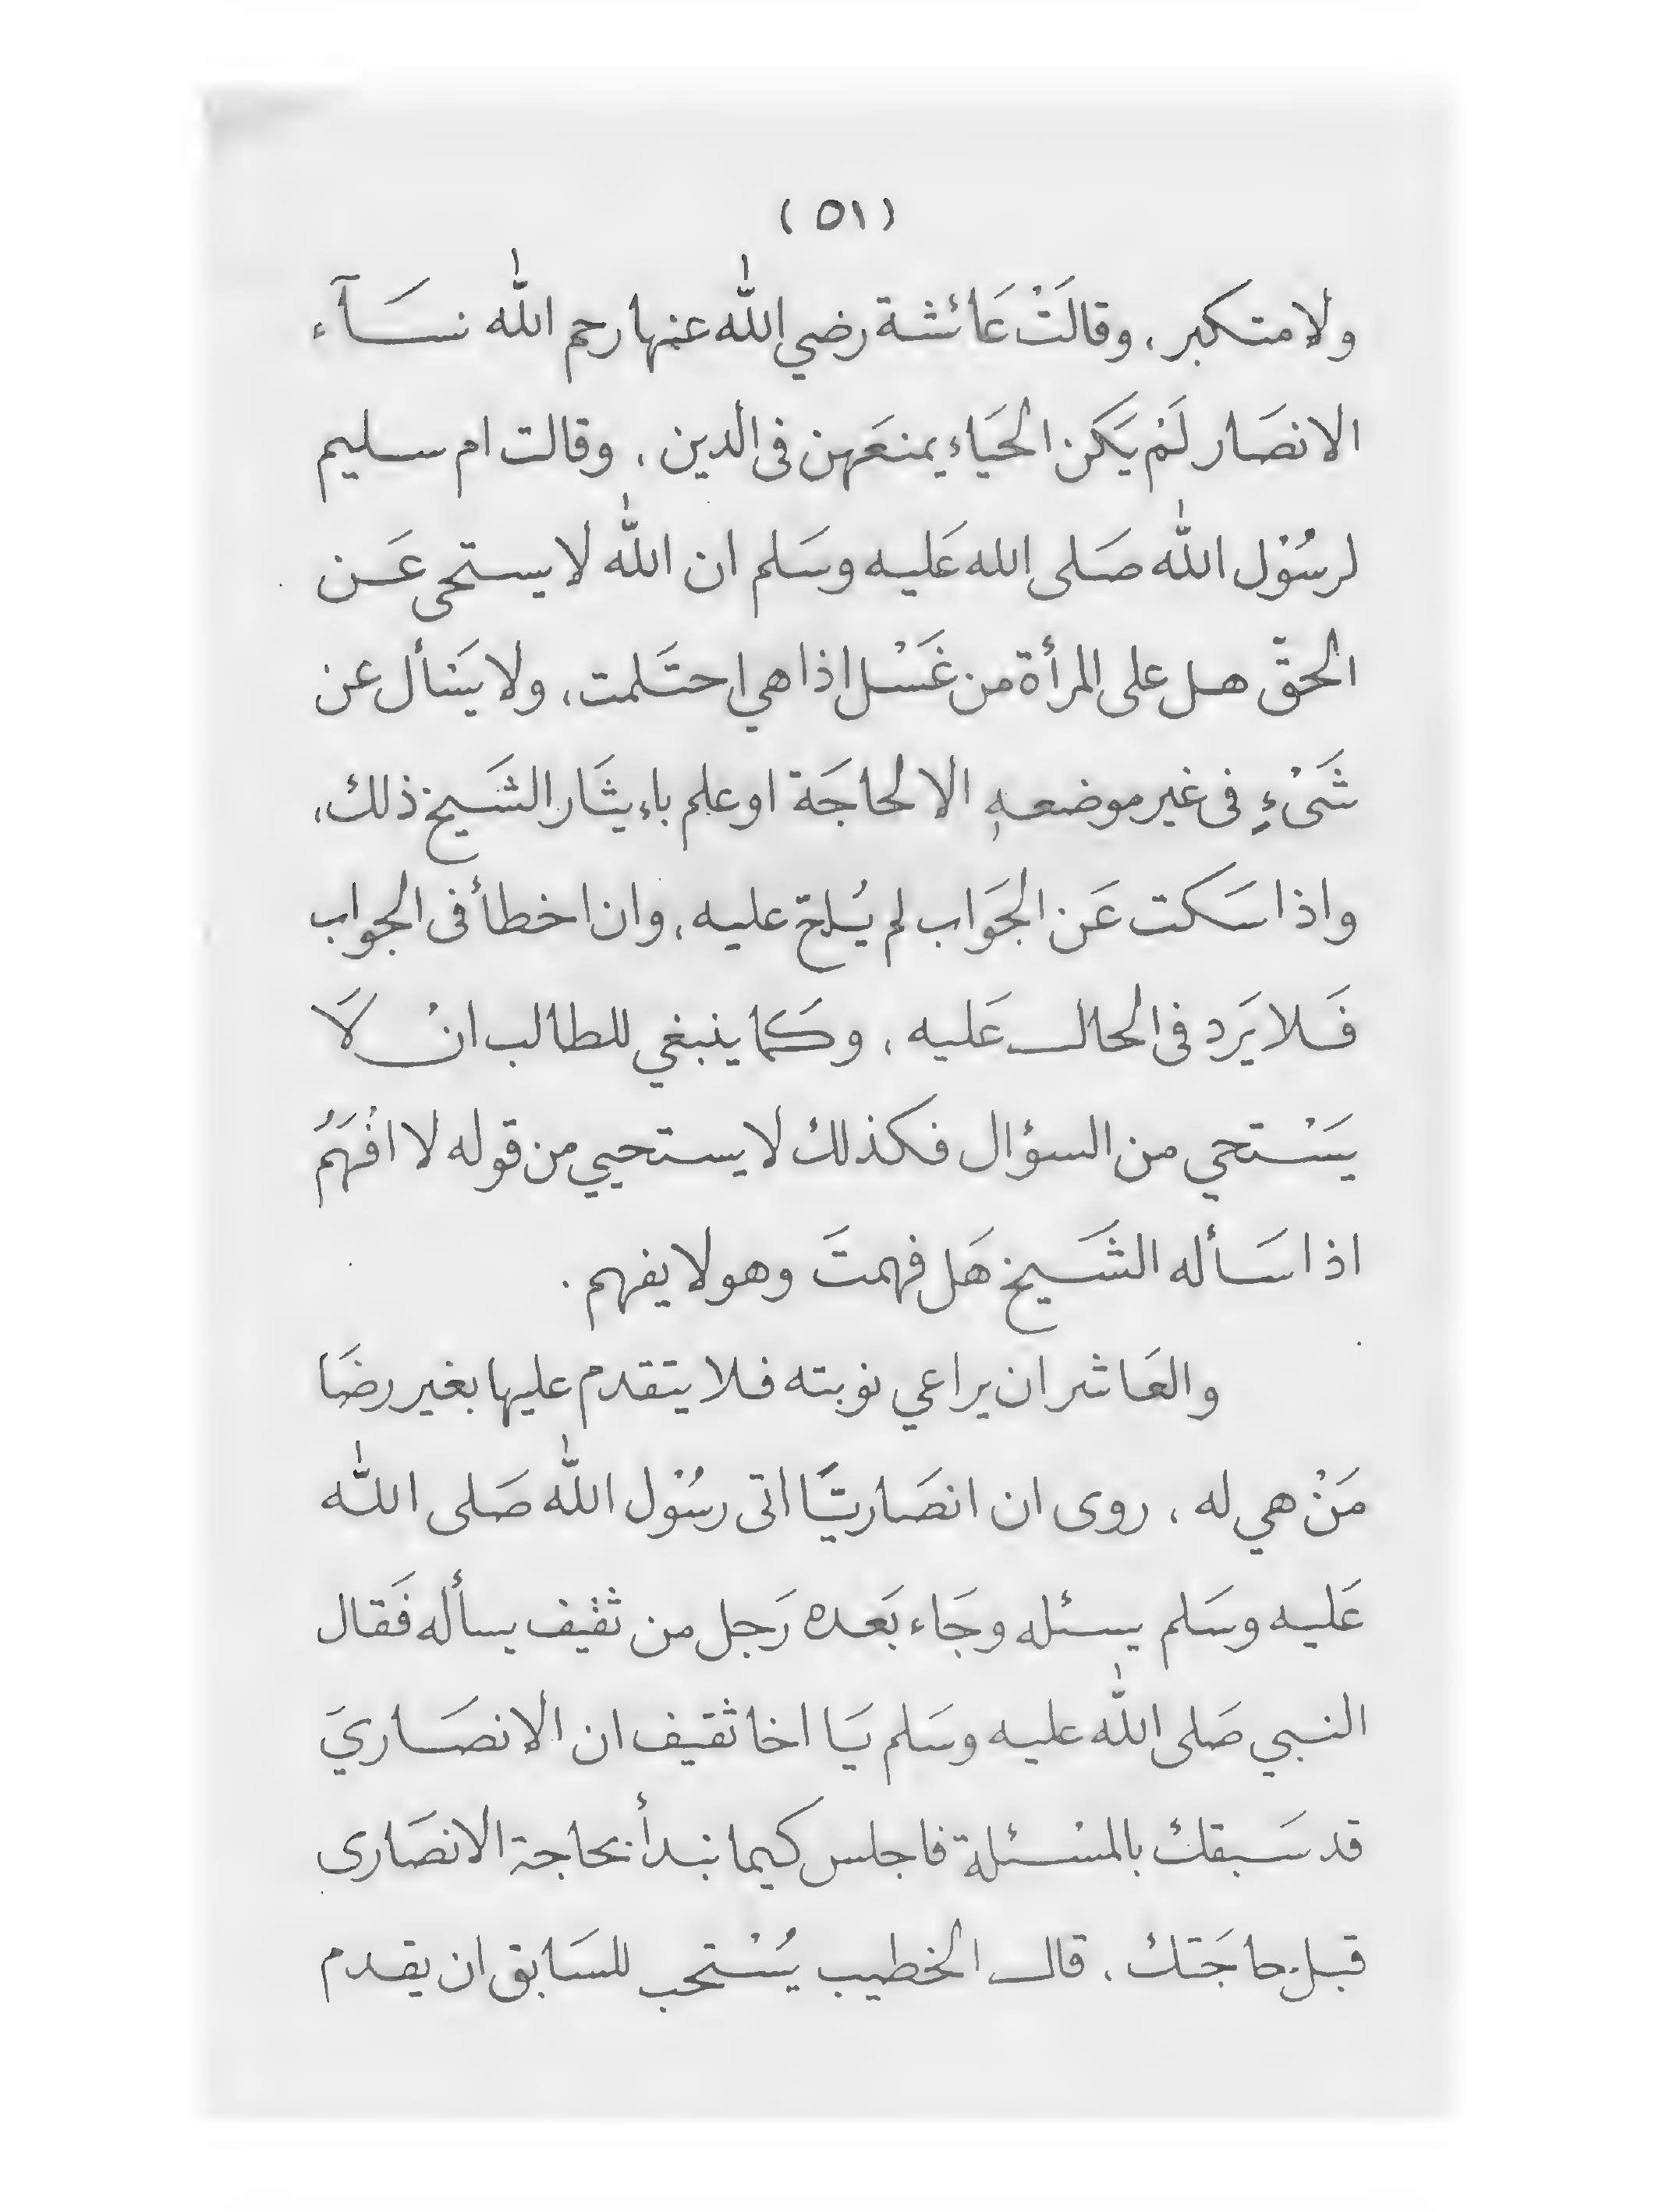 (٥١)
ولا متكبر، وقالَتْ عَائشة رضي الله عنها رحم الله نسَآء
الانصَار لَمْ يَكن الحَياء يمنعَهن فى الدين، وقالت ام سليم
لرسُوْل الله صَلى الله عَليه وسَلم ان الله لا يستحى عَن
الحقّ هل على المرأة من غَسْل اذا هي احتَلمت، ولا يَسْأل عن
شَىْءٍ فى غير موضعهٖ الا لحاجَة او علم باءيثَار الشَيخ ذلك،
واذا سَكت عَن الجَوَاب لم يُلحّ عليه، وان اخطأ فى الجواب
فَلا يَرد فى الحال عَليه، وكَما ينبغي للطالب انْ لاَ
يَسْتحي من السؤال فكذلك لا يستحيي من قوله لا افْهَمُ
اذا سَأله الشَيخ هَل فهمتَ وهو لا يفهم.
والعَاشر ان يراعي نوبته فلا يتقدم عليها بغير رضَا
مَنْ هي له، روى ان انصَاريًّا اتى رسُوْل الله صَلى الله
عَليه وسَلم يسئله وجَاء بَعده رَجل من ثقيف يسأله فَقال
النبي صَلى الله عليه وسَلم يَا اخا ثقيف ان الانصَاريَ
قد سَبقك بالمسْئلة فاجلس كيما نبدأ بحاجة الانصَارى
قبل حاجَتك، قال الخطيب يُسْتحب للسَابق ان يقدم